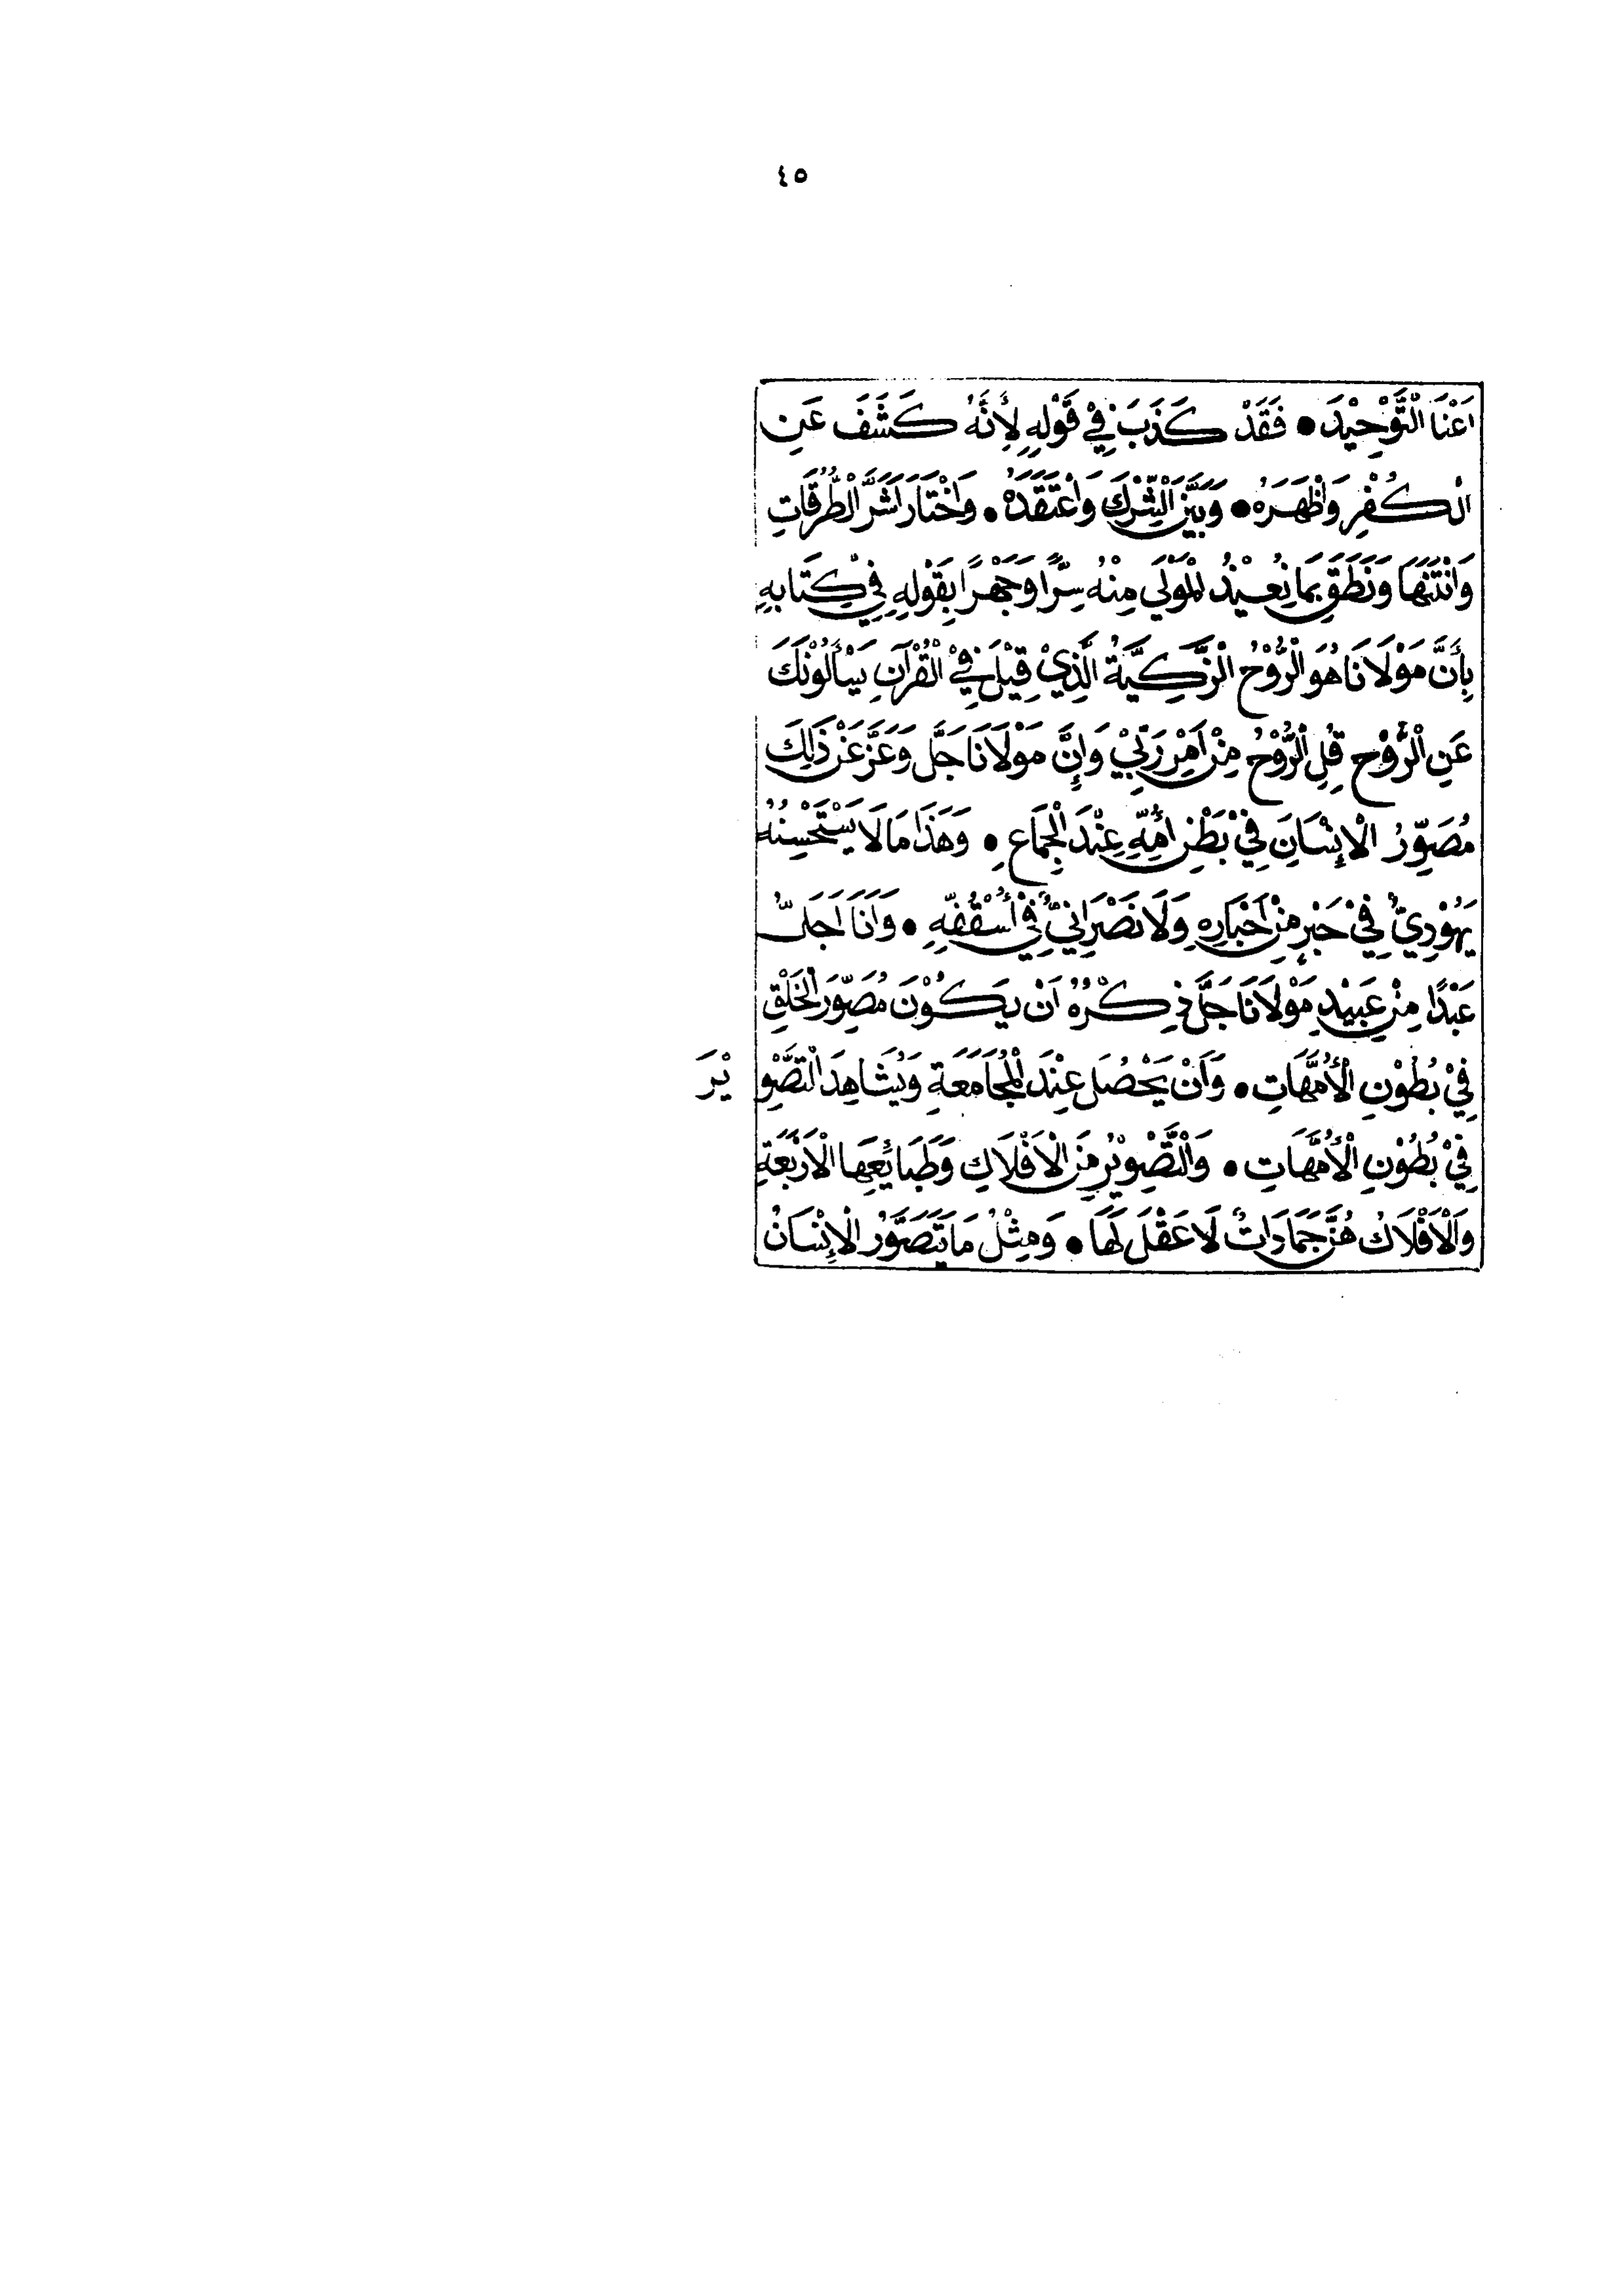 ٤٥
اَعْنَا الْتَّوْحِيْدَ • فَقَدْ كَذَبَ فِيْ قَوْلِهِ لِأَنَّهُ كَشَفَ عَنِ
الْكُفْرِ وَاَظْهَرَهُ • وَبَيَّنَ الْشِّرْكَ وَاَعْتَقَدَهُ • وَاَخْتَارَ اَشَرَّ الْطُّرُقَاتِ
وَاَنْتَنَهَا وَنَطَقَ بِمَا نُعِيْذُ الْمَوْلَى مِنْهُ سِرًّا وَجَهْرًا بِقَوْلِهِ فِيْ كِتَابِهِ
بِأَنَّ مَوْلَانَا هُوَ الْرُّوْحُ الْزَّكِيَّةُ الَّذِيْ قِيْلَ فِيْ الْقُرْآنِ يَسْأَلُوْنَكَ
عَنِ الْرُّوْحِ قُلِ الْرُّوْحُ مِنْ اَمْرِ رَبِّيْ وَإِنَّ مَوْلَانَا جَلَّ وَعَزَّ عَنْ ذَلِكَ
مُصَوِّرُ الْإِنْسَانِ فِيْ بَطْنِ اُمِّهِ عِنْدَ الْجِمَاعِ • وَهَذَا مَا لَا يَسْتَحْسِنُهُ
يَهُوْدِيٌّ فِيْ حَبْرٍ مِنْ اَحْبَارِهِ وَلَا نَصْرَانِيٌّ فِيْ أُسْقُفِّهِ • وَاَنَا اَجَلُّ
عَبْدًا مِنْ عَبِيْدِ مَوْلَانَا جَلَّ ذِكْرُهُ اَنْ يَكُوْنَ مُصَوِّرَ الْخَلْقِ
فِيْ بُطُوْنِ الْأُمَّهَاتِ • وَاَنْ يَحْصُلَ عِنْدَ الْمُجَامَعَةِ وَيُشَاهِدَ الْتَّصْوِيْرَ
فِيْ بُطُوْنِ الْأُمَّهَاتِ • وَالْتَّصْوِيْرُ مِنَ الْاَفْلَاكِ وَطَبَائِعِهَا الْاَرْبَعَةِ
وَالْاَفْلَاكُ هُنَّ جَمَادَاتٌ لَا عَقْلَ لَهَا • وَمِثْلُ مَا تَتَصَوَّرُ الْإِنْسَانُ